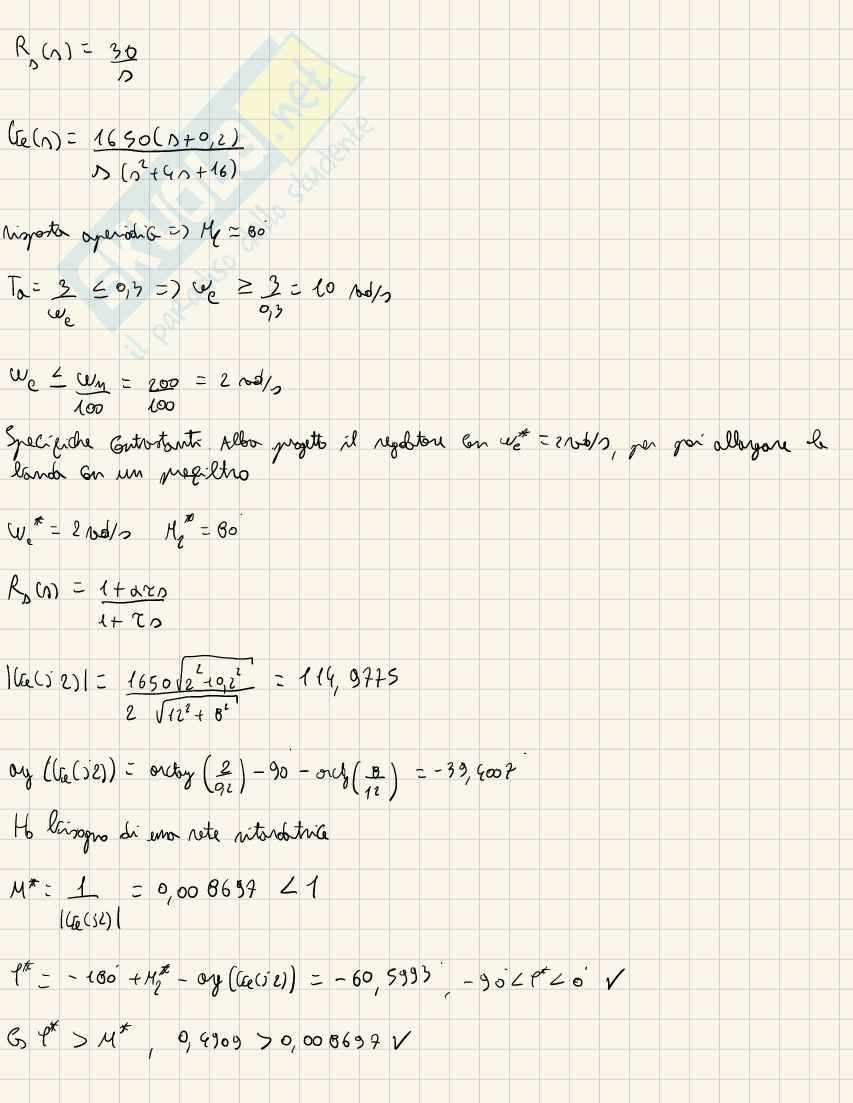 R_s(s) = 30/s
G_e(s) = 1650(s+0,2) / s(s²+4s+16)
risposta aperiodica => M_f ≃ 80°
T_a = 3/ω_c ≤ 0,3 => ω_c ≥ 3/0,3 = 10 rad/s
ω_c ≤ ω_n/100 = 200/100 = 2 rad/s
Specifiche contrastanti. Allora progetto il regolatore con ω_c* = 2 rad/s, per poi allargare la
banda con un prefiltro
ω_c* = 2 rad/s M_f* = 80°
R_D(s) = (1+ατs)/(1+τs)
|G_e(j2)| = 1650√(2²+0,2²) / 2√(12²+8²) = 114,9775
arg(G_e(j2)) = arctg(2/0,2) - 90° - arctg(8/12) = -39,4007°
Ho bisogno di una rete ritardatrice
M* = 1/|G_e(j2)| = 0,008697 < 1
φ* = -180° + M_f* - arg(G_e(j2)) = -60,5993°, -90° < φ* < 0° ✓
Cos φ* > M*, 0,4909 > 0,008697 ✓
SKUOLA.net
il paradiso dello studente